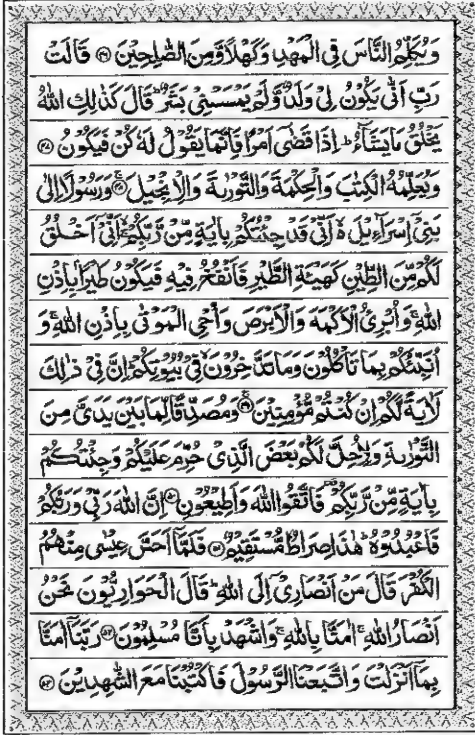 وَيُكَلِّمُ النَّاسَ فِي الْمَهْدِ وَكَهْلًا وَّمِنَ الصّٰلِحِيْنَ ﴿۴۶﴾ قَالَتْ
رَبِّ اَنّٰى يَكُوْنُ لِيْ وَلَدٌ وَّلَمْ يَمْسَسْنِيْ بَشَرٌ ؕ قَالَ كَذٰلِكِ اللّٰهُ
يَخْلُقُ مَا يَشَآءُ ؕ اِذَا قَضٰۤى اَمْرًا فَاِنَّمَا يَقُوْلُ لَهٗ كُنْ فَيَكُوْنُ ﴿۴۷﴾
وَيُعَلِّمُهُ الْكِتٰبَ وَالْحِكْمَةَ وَالتَّوْرٰىةَ وَالْاِنْجِيْلَ ﴿۴۸﴾ وَرَسُوْلًا اِلٰى
بَنِيْۤ اِسْرَآءِيْلَ ۙ اَنِّيْ قَدْ جِئْتُكُمْ بِاٰيَةٍ مِّنْ رَّبِّكُمْ ۙ اَنِّيْۤ اَخْلُقُ
لَكُمْ مِّنَ الطِّيْنِ كَهَيْئَةِ الطَّيْرِ فَاَنْفُخُ فِيْهِ فَيَكُوْنُ طَيْرًۢا بِاِذْنِ
اللّٰهِ ۚ وَاُبْرِئُ الْاَكْمَهَ وَالْاَبْرَصَ وَاُحْيِ الْمَوْتٰى بِاِذْنِ اللّٰهِ ۚ وَ
اُنَبِّئُكُمْ بِمَا تَاْكُلُوْنَ وَمَا تَدَّخِرُوْنَ ۙ فِيْ بُيُوْتِكُمْ ؕ اِنَّ فِيْ ذٰلِكَ
لَاٰيَةً لَّكُمْ اِنْ كُنْتُمْ مُّؤْمِنِيْنَ ﴿۴۹﴾ وَمُصَدِّقًا لِّمَا بَيْنَ يَدَيَّ مِنَ
التَّوْرٰىةِ وَلِاُحِلَّ لَكُمْ بَعْضَ الَّذِيْ حُرِّمَ عَلَيْكُمْ وَجِئْتُكُمْ
بِاٰيَةٍ مِّنْ رَّبِّكُمْ ۫ فَاتَّقُوا اللّٰهَ وَاَطِيْعُوْنِ ﴿۵۰﴾ اِنَّ اللّٰهَ رَبِّيْ وَرَبُّكُمْ
فَاعْبُدُوْهُ ؕ هٰذَا صِرَاطٌ مُّسْتَقِيْمٌ ﴿۵۱﴾ فَلَمَّاۤ اَحَسَّ عِيْسٰى مِنْهُمُ
الْكُفْرَ قَالَ مَنْ اَنْصَارِيْۤ اِلَى اللّٰهِ ؕ قَالَ الْحَوَارِيُّوْنَ نَحْنُ
اَنْصَارُ اللّٰهِ ۚ اٰمَنَّا بِاللّٰهِ ۚ وَاشْهَدْ بِاَنَّا مُسْلِمُوْنَ ﴿۵۲﴾ رَبَّنَاۤ اٰمَنَّا
بِمَاۤ اَنْزَلْتَ وَاتَّبَعْنَا الرَّسُوْلَ فَاكْتُبْنَا مَعَ الشّٰهِدِيْنَ ﴿۵۳﴾